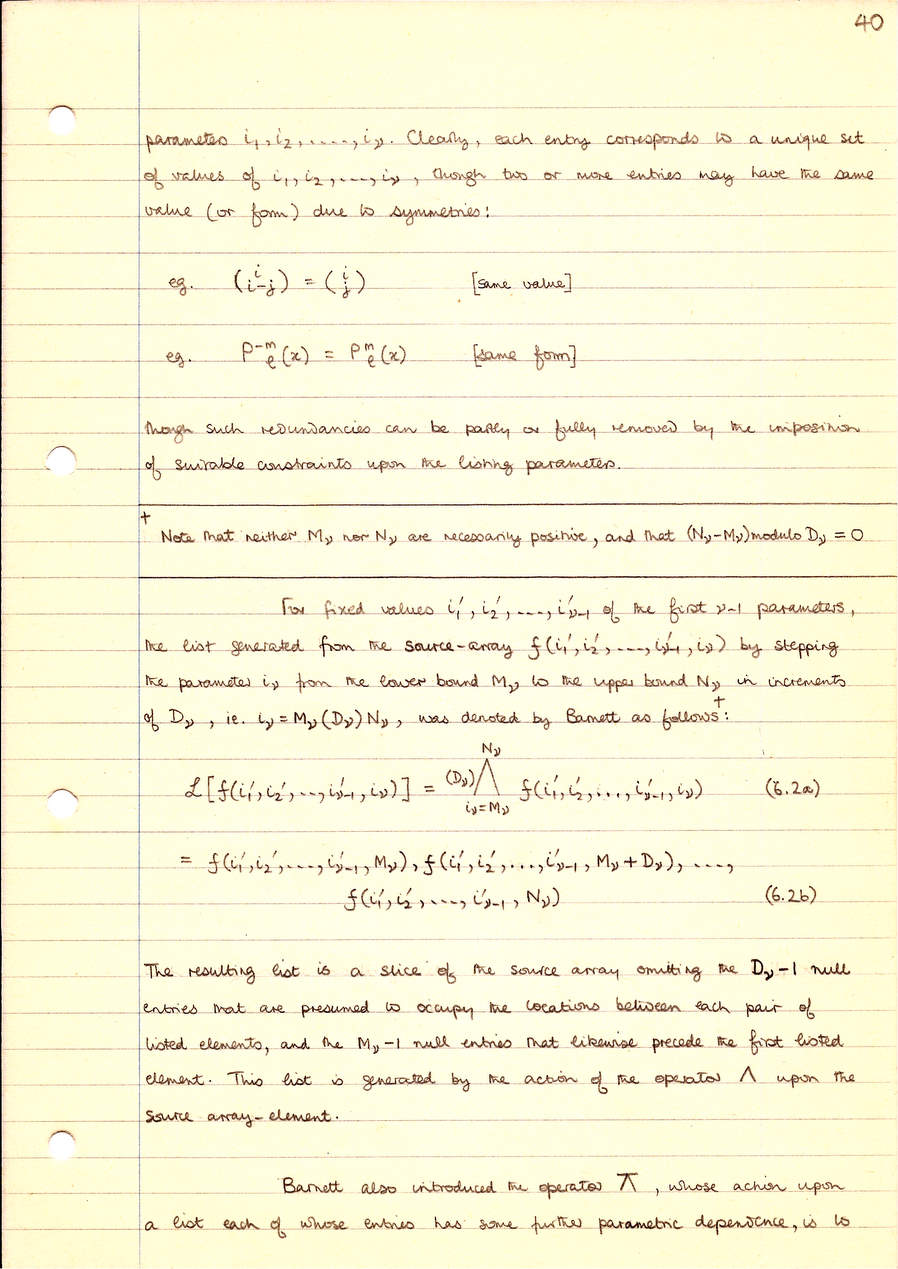 40
parameters i₁, i₂, ...., iᵥ. Clearly, each entry corresponds to a unique set
of values of i₁, i₂, ...., iᵥ, though two or more entries may have the same
value (or form) due to symmetries:
eg. (i i-j) = (i j) [same value]
eg. P⁻ᵐ_ℓ(x) = Pᵐ_ℓ(x) [same form]
though such redundancies can be partly or fully removed by the imposition
of suitable constraints upon the listing parameters.
† Note that neither Mᵥ nor Nᵥ are necessarily positive, and that (Nᵥ-Mᵥ)modulo Dᵥ = 0
For fixed values i₁′, i₂′, ...., i′ᵥ₋₁ of the first ν-1 parameters,
the list generated from the source-array f(i₁′, i₂′, ...., i′ᵥ₋₁, iᵥ) by stepping
the parameter iᵥ from the lower bound Mᵥ to the upper bound Nᵥ in increments
of Dᵥ, ie. iᵥ = Mᵥ(Dᵥ)Nᵥ, was denoted by Barnett as follows†:
ℒ[f(i₁′, i₂′, ..., i′ᵥ₋₁, iᵥ)] = (Dᵥ) Nᵥ Λ iᵥ=Mᵥ f(i₁′, i₂′, ..., i′ᵥ₋₁, iᵥ) (6.2a)
= f(i₁′, i₂′, ...., i′ᵥ₋₁, Mᵥ), f(i₁′, i₂′, ..., i′ᵥ₋₁, Mᵥ + Dᵥ), ....,
f(i₁′, i₂′, ...., i′ᵥ₋₁, Nᵥ) (6.2b)
The resulting list is a slice of the source array omitting the Dᵥ-1 null
entries that are presumed to occupy the locations between each pair of
listed elements, and the Mᵥ-1 null entries that likewise precede the first listed
element. This list is generated by the action of the operator Λ upon the
source array-element.
Barnett also introduced the operator ⊼, whose action upon
a list each of whose entries has some further parametric dependence, is to